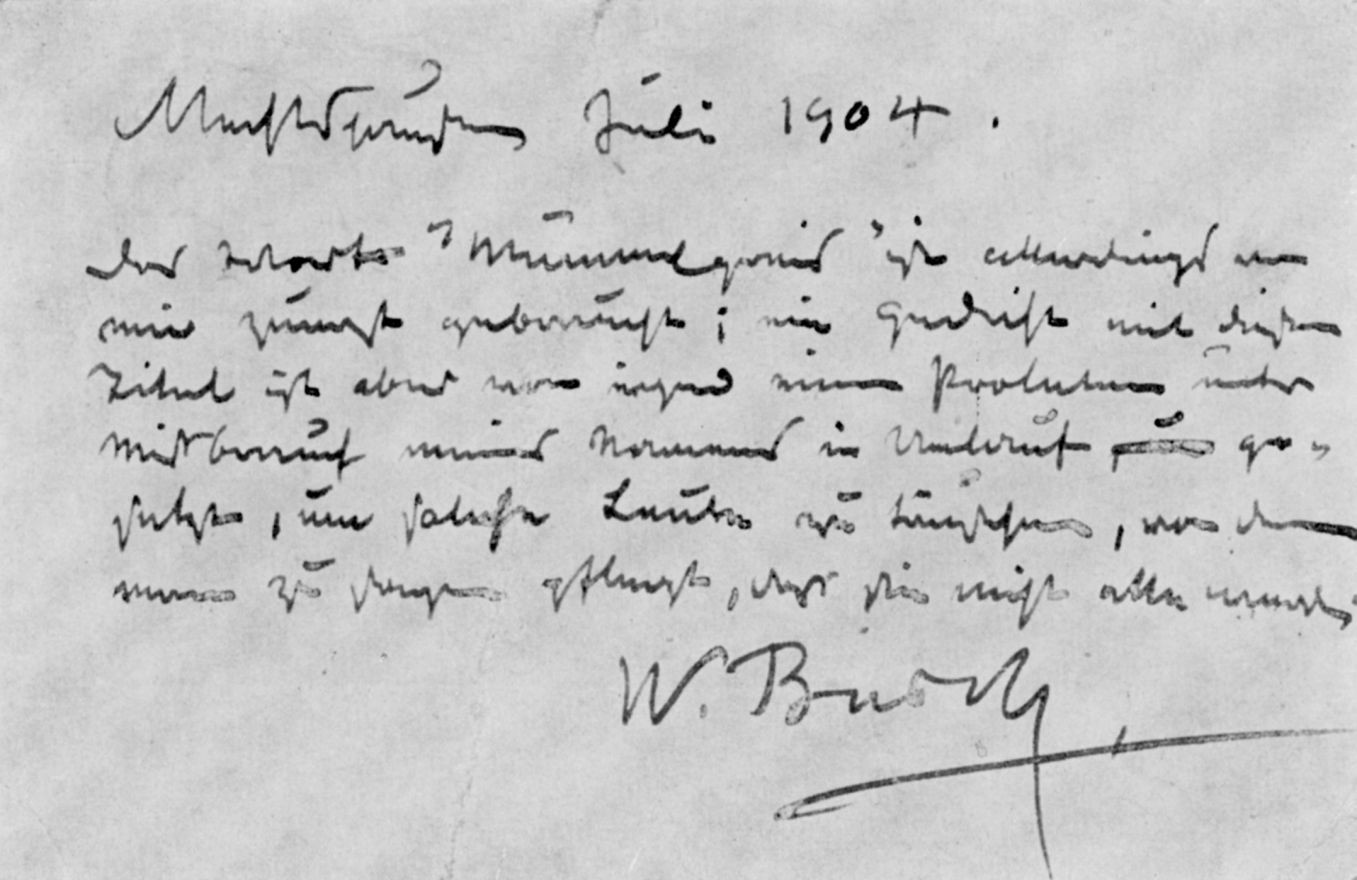 Mechtshausen Juli 1904.
Das Wort „Mummelgreis" ist allerdings von
mir zuerst gebraucht; ein Gedicht mit diesem
Titel ist aber von irgend einem Proleten unter
Missbrauch meines Namens in Umlauf ge-
setzt, um solche Leute zu täuschen, von denen
man zu sagen pflegt, dass sie nicht alle werden.
W. Busch